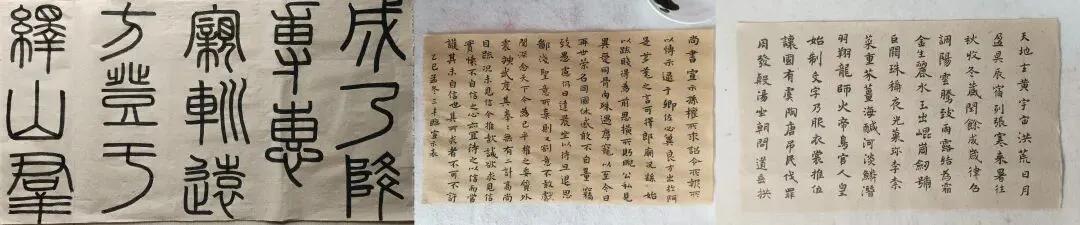 成乃降
專惠
寴遠
方登于
繹山群
尚書宣示孫權所求詔令所報所
以博示逮于卿佐必冀良方出於阿
是芻蕘之言可擇郎廟況繇始
以疏賤得為前恩橫所盼公私見
異愛同骨肉殊遇厚寵以至今日
再世榮名同國休慼敢不自量竊
致愚慮仍日達晨坐以待旦退思
鄙淺聖意所棄則又割意不敢獻
聞深念天下今為已平權之委質外
震神武度其拳拳無有二計高尚
自疏況未見信今推款誠欲求見信
實懷不自信之心亦宜待之以信而當
護其未自信也其所求者不可不許
乙巳孟冬三十臨宣示表
天地玄黃宇宙洪荒日月
盈昃辰宿列張寒來暑往
秋收冬藏閏餘成歲律呂
調陽雲騰致雨露結為霜
金生麗水玉出崐崗劒號
巨闕珠稱夜光菓珍李柰
菜重芥薑海鹹河淡鱗潛
羽翔龍師火帝鳥官人皇
始制文字乃服衣裳推位
讓國有虞陶唐弔民伐罪
周發殷湯坐朝問道垂拱